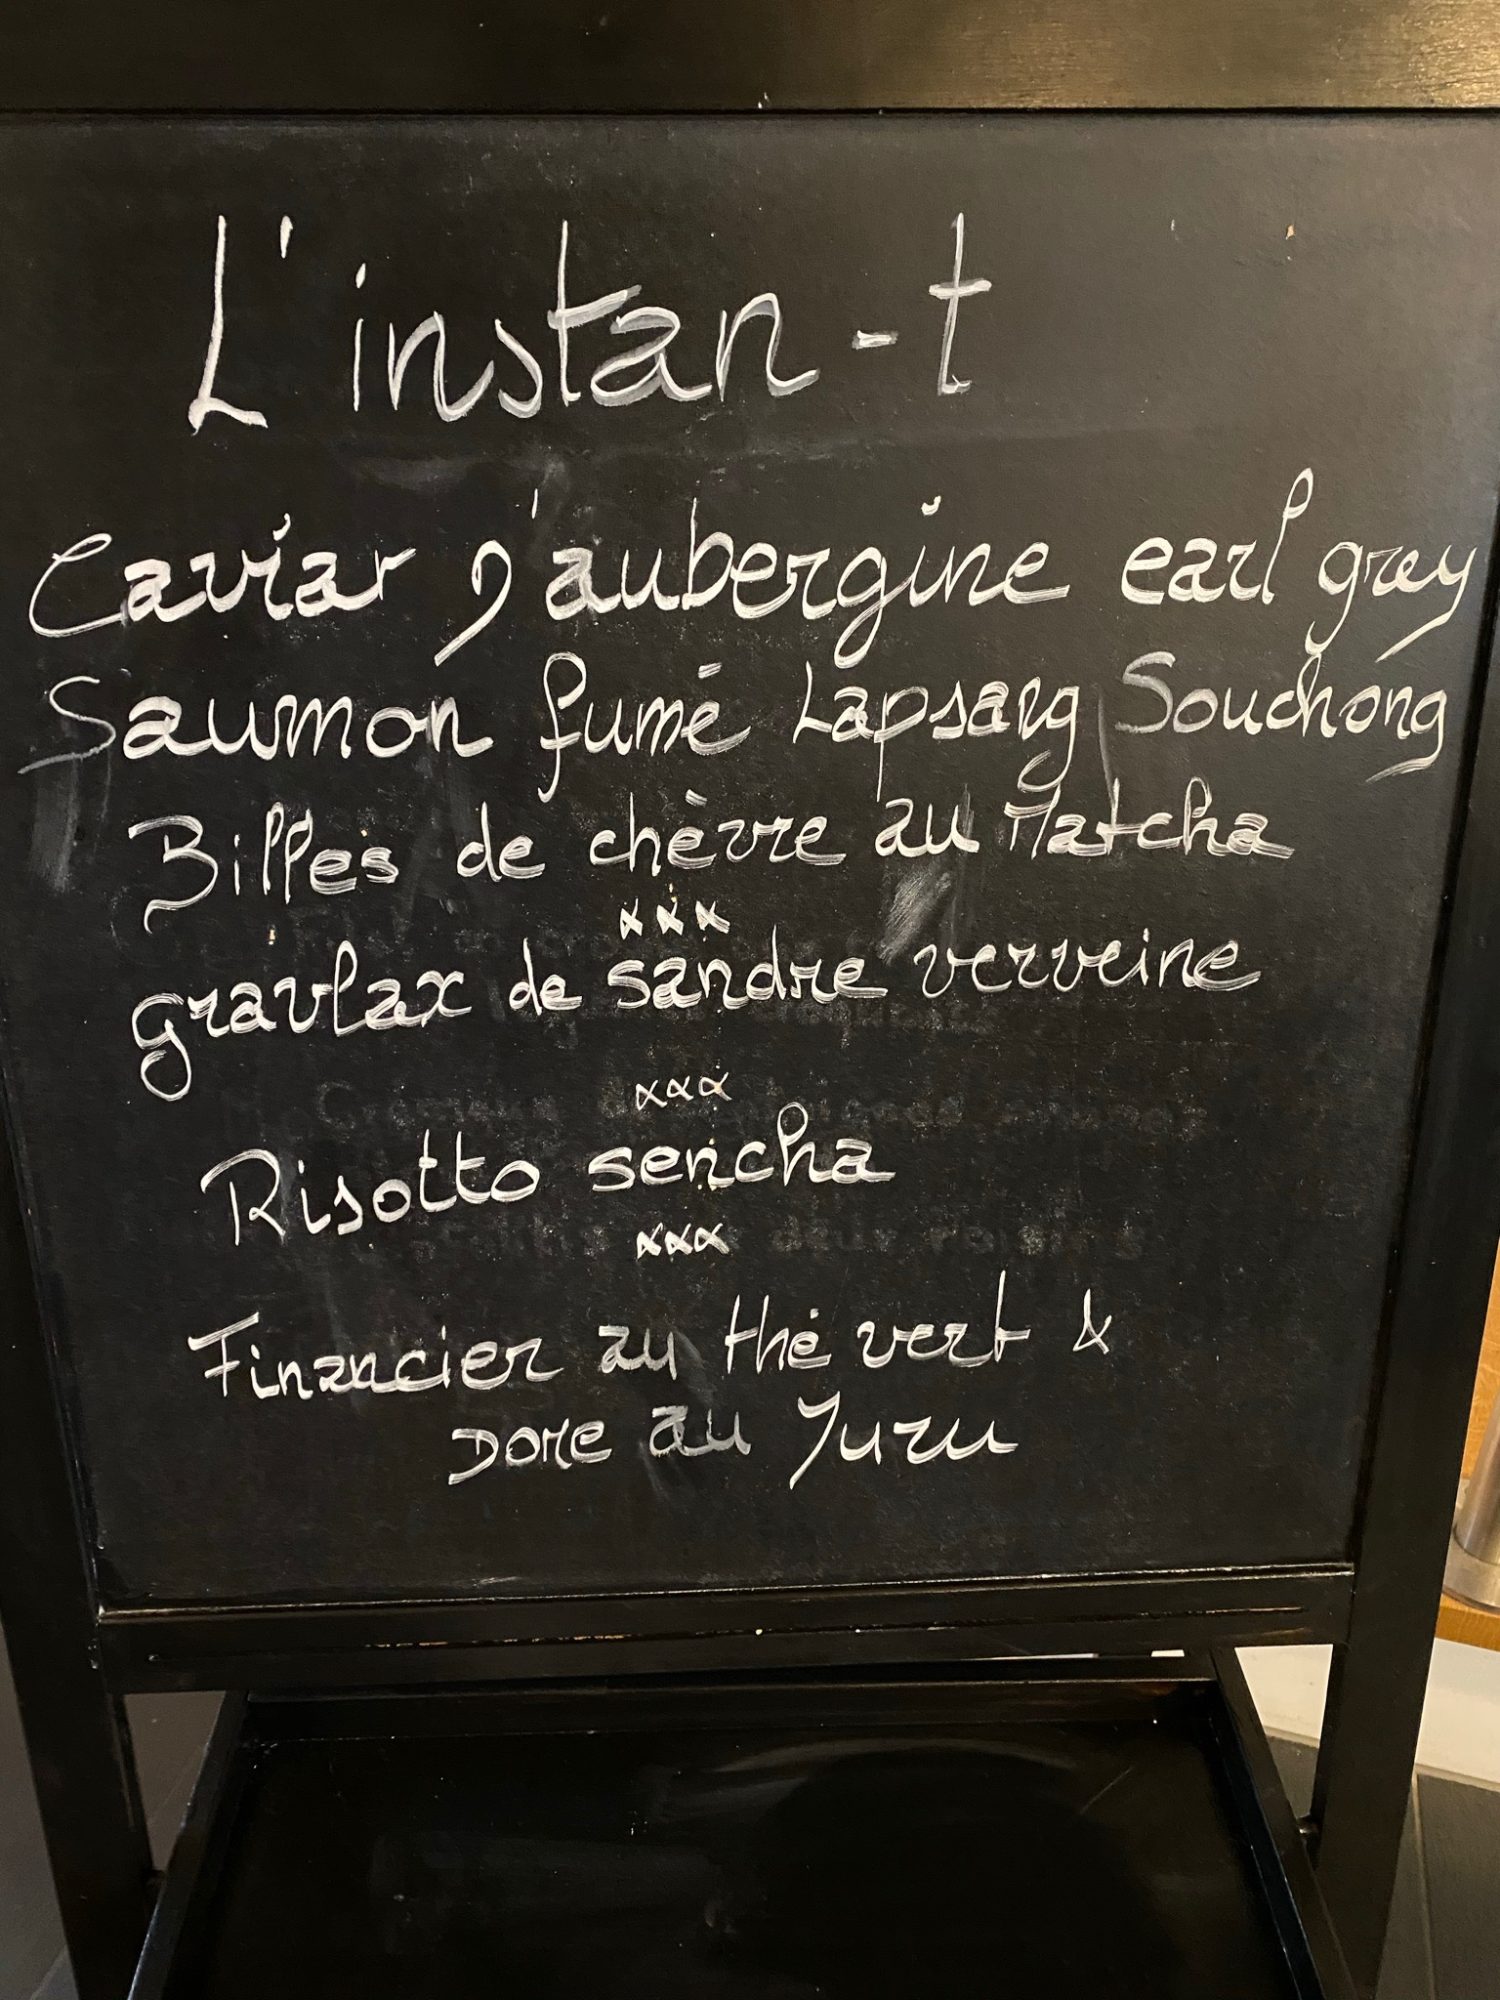 L'instan-t
Caviar d'aubergine earl grey
Saumon fumé Lapsang Souchong
Billes de chèvre au Matcha
xxx
gravlax de sandre verveine
xxx
Risotto sencha
xxx
Financier au thé vert &
Dome au Yuzu